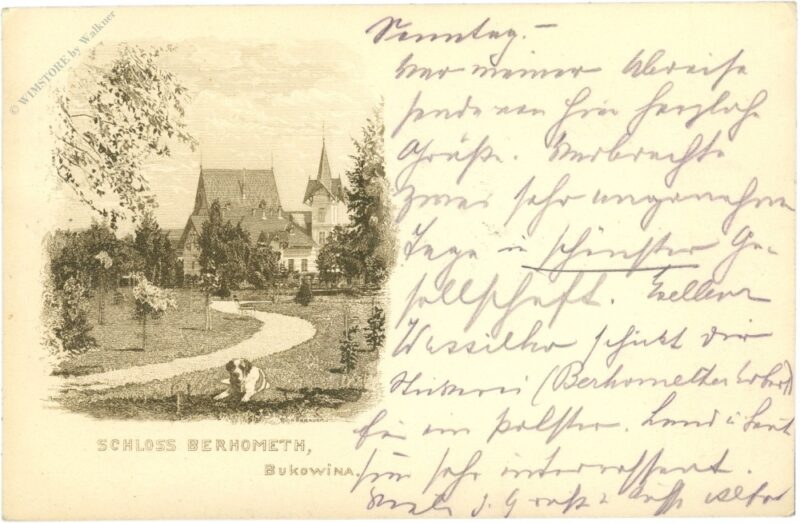 © WIMSTORE by Walkner
SCHLOSS BERHOMETH,
BUKOWINA.
Sonntag. –
Vor meiner Abreise
sende von hier herzliche
Grüße. Verbrachte
zwei sehr angenehme
Tage in schönster Ge-
sellschaft. Exellenz
Wassilko schickt dir
Stickerei (Berhomether Arbeit)
für ein Polster. Land u Leut
sind sehr interressant.
Viele